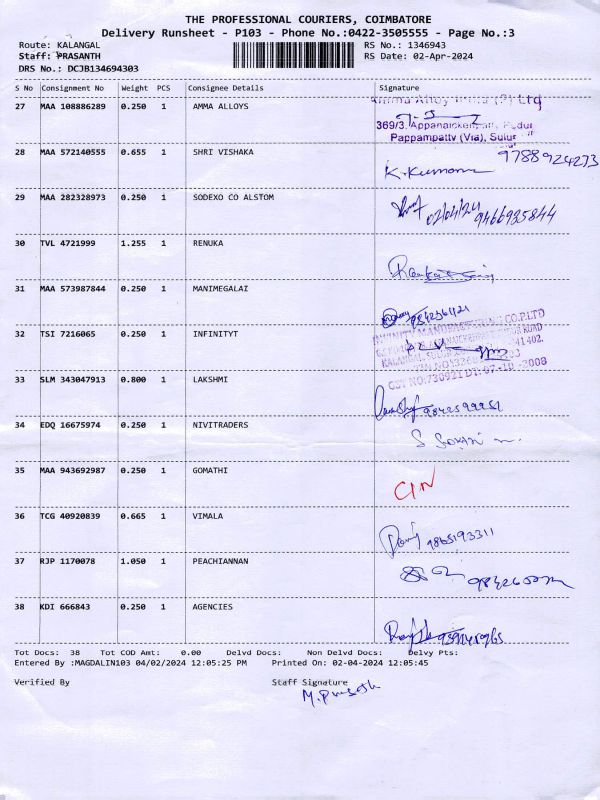 THE PROFESSIONAL COURIERS, COIMBATORE
Delivery Runsheet - P103 - Phone No.:0422-3505555 - Page No.:3
Route: KALANGAL RS No.: 1346943
Staff: PRASANTH RS Date: 02-Apr-2024
DRS No.: DCJB134694303
S No Consignment No Weight PCS Consignee Details Signature
27 MAA 108886289 0.250 1 AMMA ALLOYS
369/3, Appanaickenpatti Pudur
Pappampatty (Via), Sulur
28 MAA 572140555 0.655 1 SHRI VISHAKA 9788924273
K. Kumar
29 MAA 282328973 0.250 1 SODEXO CO ALSTOM 02/04/24 9466935844
30 TVL 4721999 1.255 1 RENUKA
31 MAA 573987844 0.250 1 MANIMEGALAI
32 TSI 7216065 0.250 1 INFINITYT
33 SLM 343047913 0.800 1 LAKSHMI
34 EDQ 16675974 0.250 1 NIVITRADERS
35 MAA 943692987 0.250 1 GOMATHI
C/N
36 TCG 40920839 0.665 1 VIMALA
9865193311
37 RJP 1170078 1.050 1 PEACHIANNAN
38 KDI 666843 0.250 1 AGENCIES
Tot Docs: 38 Tot COD Amt: 0.00 Delvd Docs: Non Delvd Docs: Delvy Pts:
Entered By :MAGDALIN103 04/02/2024 12:05:25 PM Printed On: 02-04-2024 12:05:45
Verified By Staff Signature